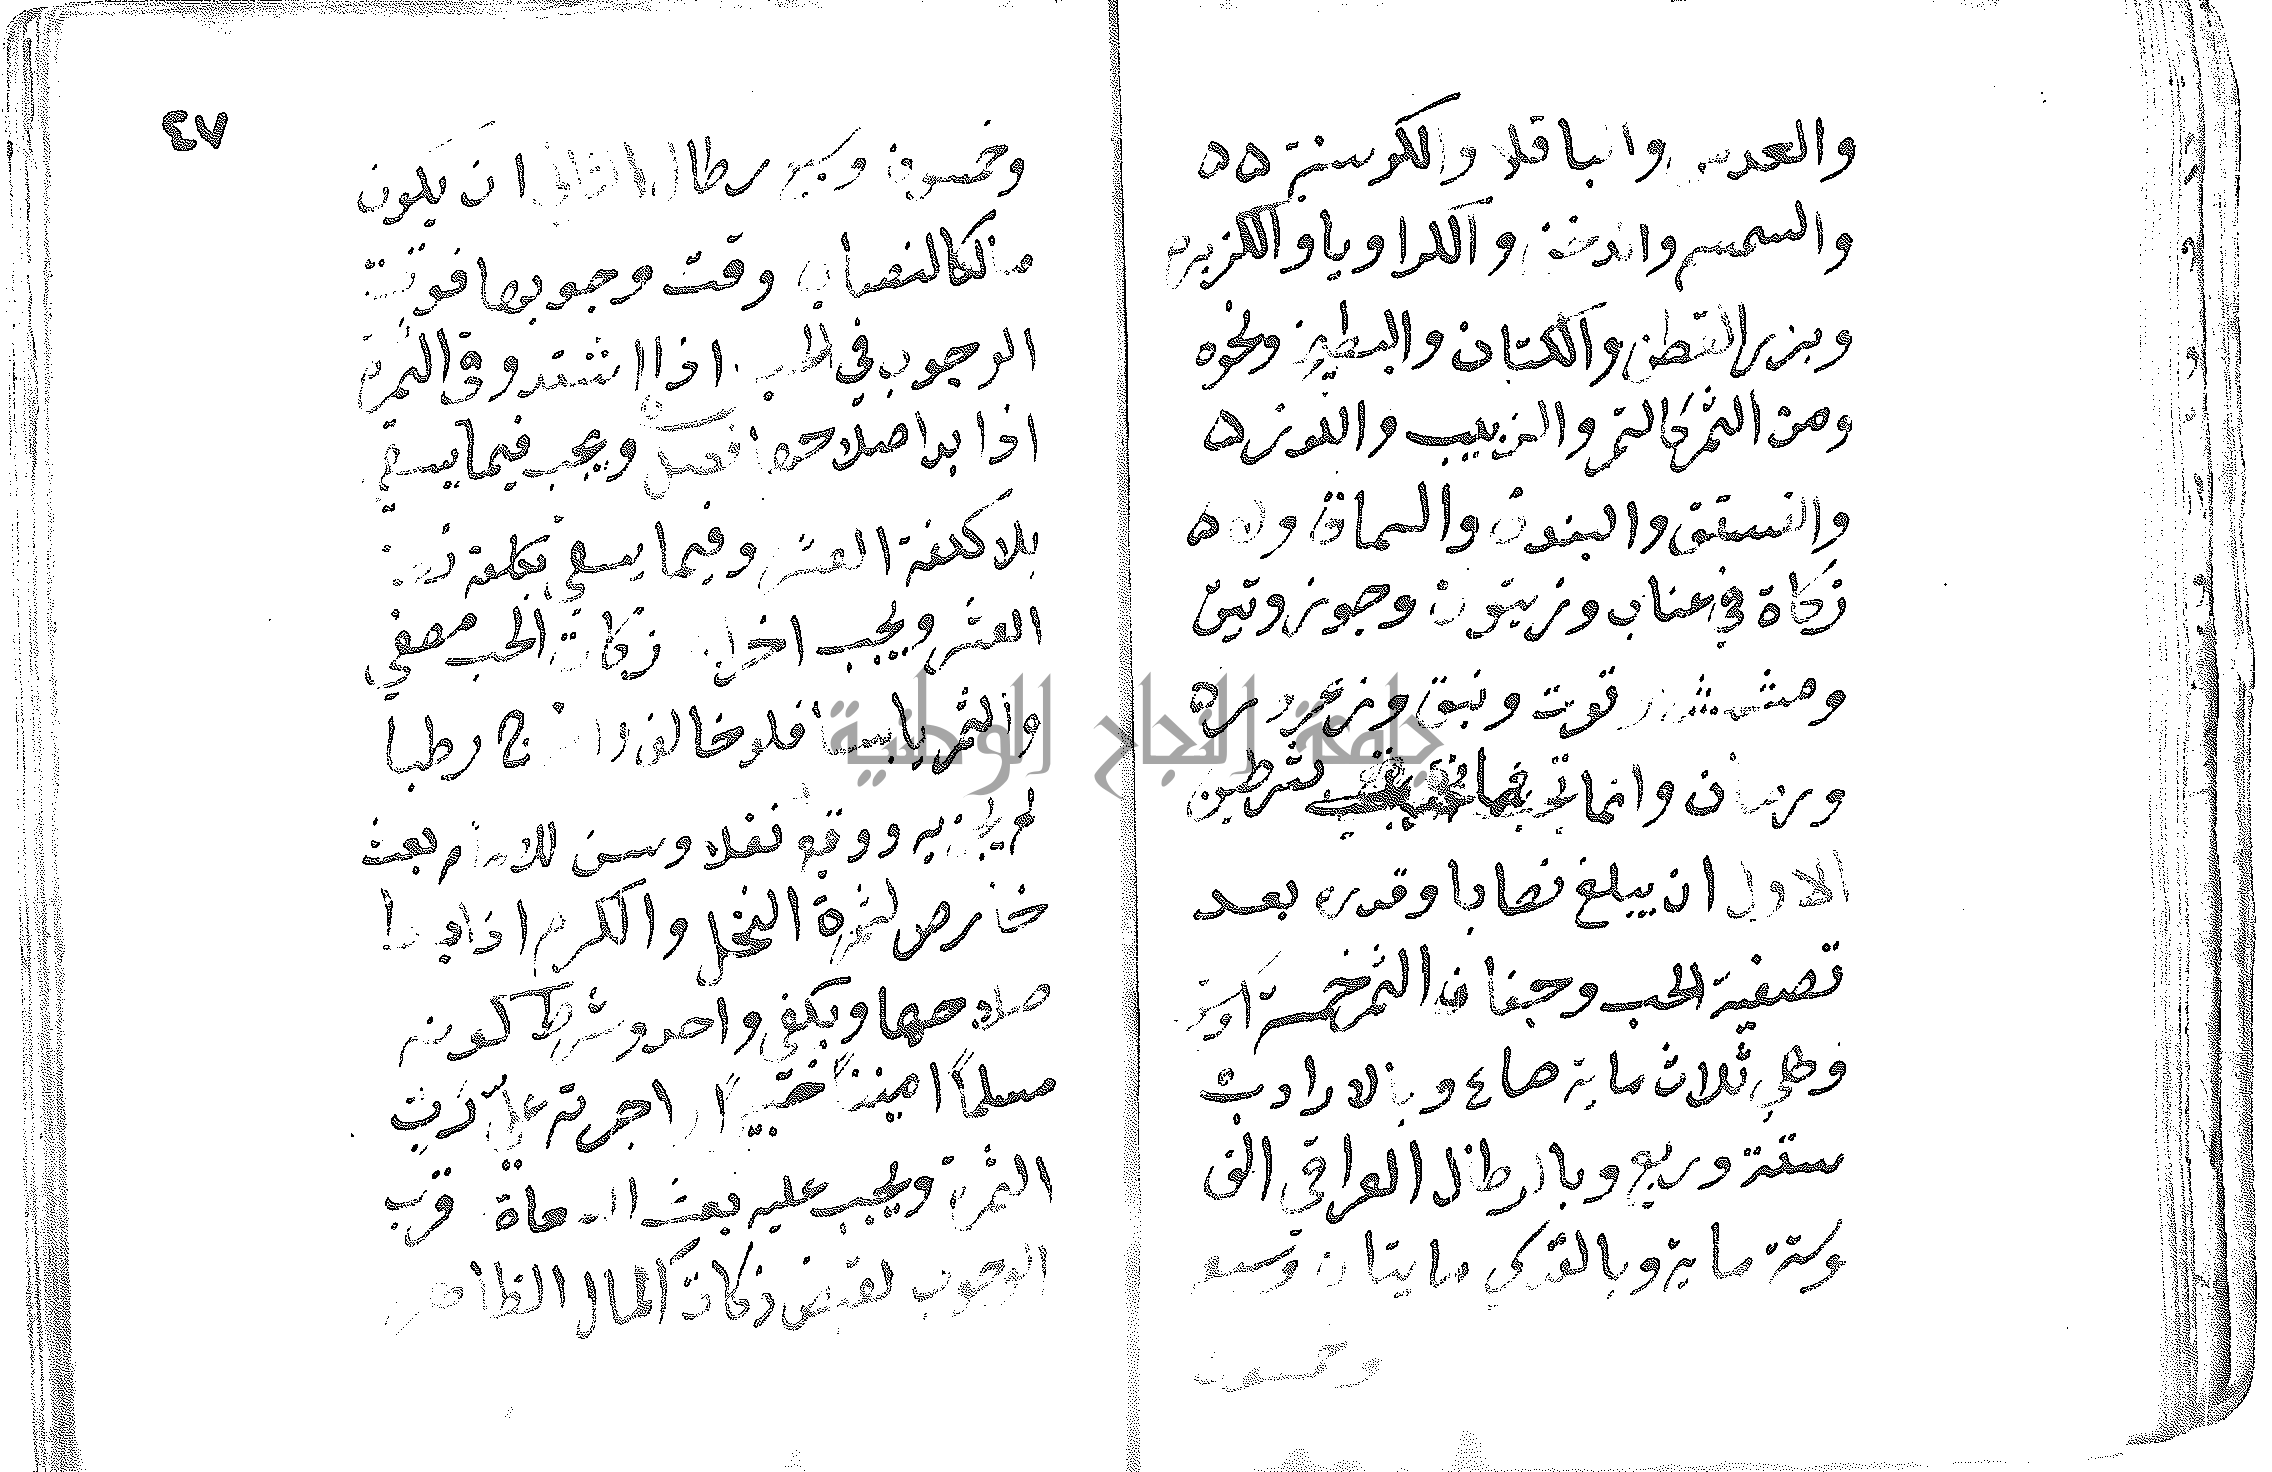 والعدس والباقلا والكرسنة ٥٥
والسمسم والدخن والكراويا والكزبره
وبزر القطن والكتان والبطيخ ونحوه
ومن الثمر كالتمر والزبيب واللوز ٥
والفستق والبندق والسماق ولا ٥
زكاة في عناب وزيتون وجوز وتين
ومشمش وتوت ونبق وزعرور ٥
ورمان وانما تجب فيما تجب بشرطين
الاول ان يبلغ نصابا وقدره بعد
تصفية الحب وجفاف الثمر خمسة اوسق
وهي ثلاث ماية صاع وبالارادب
ستة وربع وبالرطل العراقي الف
وستة ماية وبالقدسي مايتان وسبعه
وخمسون
٤٧
وخمسون وسبع رطل الثاني ان يكون
مالكا للنصاب وقت وجوبها فوقت
الوجوب في الحب اذا اشتد وفي الثمرة
اذا بدا صلاحها فصل ويجب فيما يسقي
بلا كلفة العشر وفيما يسقي بكلفة نصف
العشر ويجب اخراج زكاة الحب مصفي
والثمر يابسا فلو خالف واخرج رطبا
لم يجزيه ووقع نفلا وسن للامام بعث
خارص لثمرة النخل والكرم اذا بدا
صلاحهما ويكفي واحد وشرط كونه
مسلماً اميناً خبيراً واجرته علي رب
الثمرة ويجب عليه بعث السعاة قرب
الوجوب لقبض زكاة المال الظاهر
جامعة النجاح الوطنية